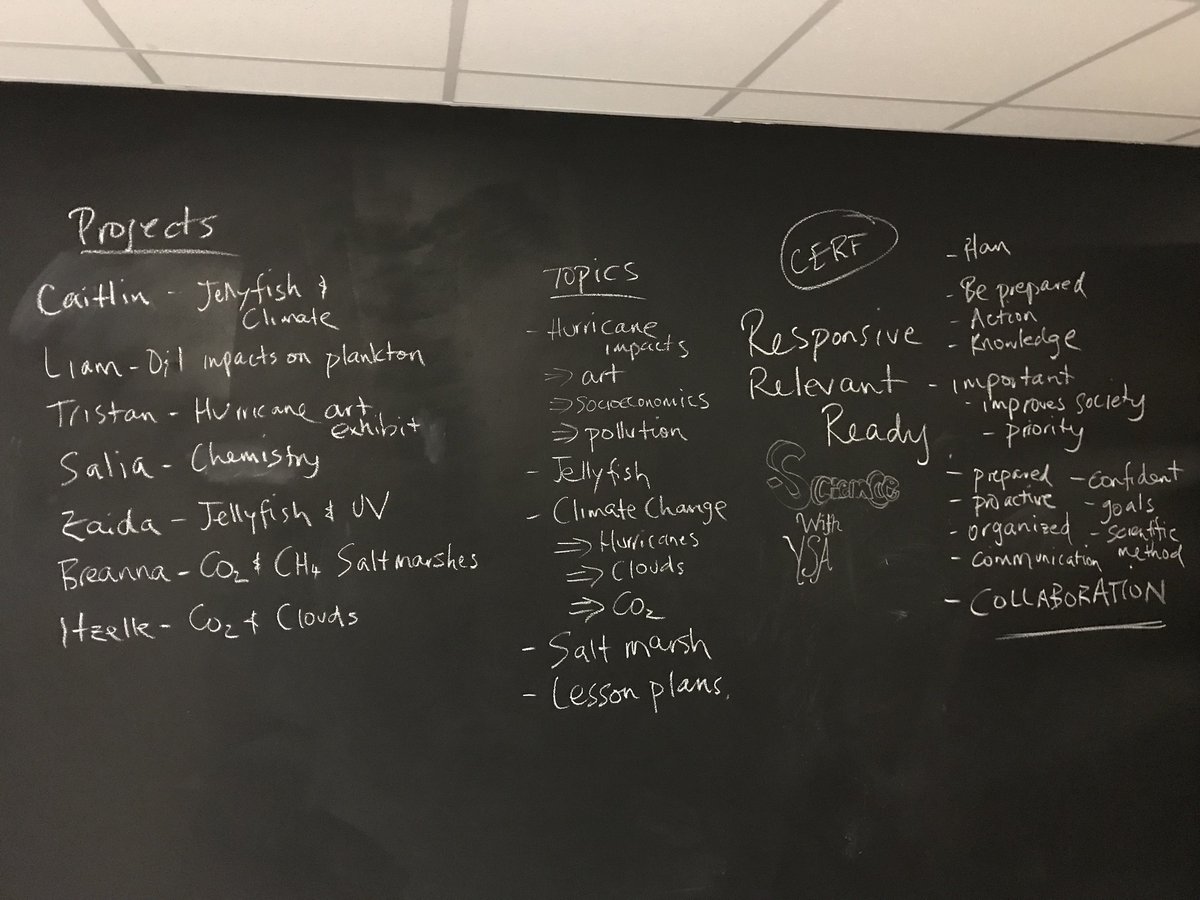 Projects
Caitlin - Jellyfish &
Climate
Liam - Oil impacts on plankton
Tristan - Hurricane art
exhibit
Salia - Chemistry
Zaida - Jellyfish & UV
Breanna - CO2 & CH4 Salt marshes
Itzelle - CO2 & Clouds
TOPICS
- Hurricane
impacts
⇒ art
⇒ Socioeconomics
⇒ pollution
- Jellyfish
- Climate Change
⇒ Hurricanes
⇒ Clouds
⇒ CO2
- Salt marsh
- Lesson plans.
CERF
Responsive
Relevant
Ready
Science
With
YSA
- Plan
- Be prepared
- Action
- Knowledge
- important
- improves society
- priority
- prepared - confident
- proactive - goals
- organized - scientific
method
- communication
- COLLABORATION